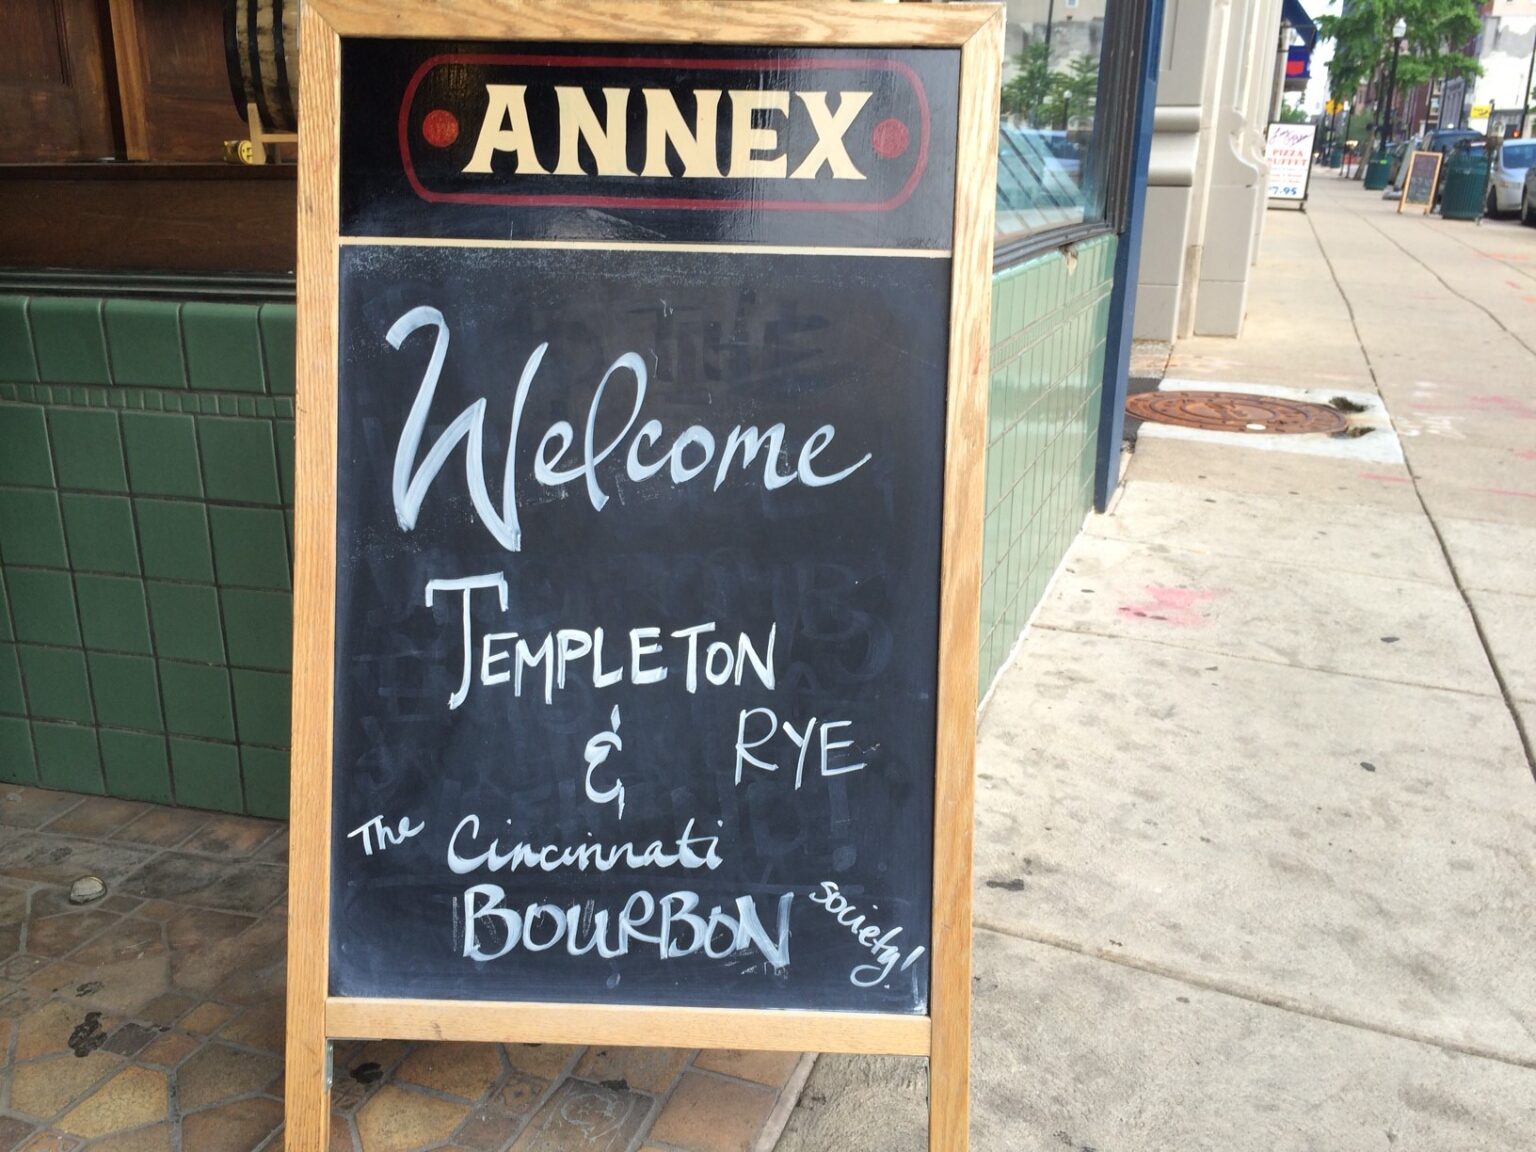 ANNEX
Welcome
TEMPLETON
RYE
&
The Cincinnati
BOURBON society!
PIZZA
BUFFET
7.95